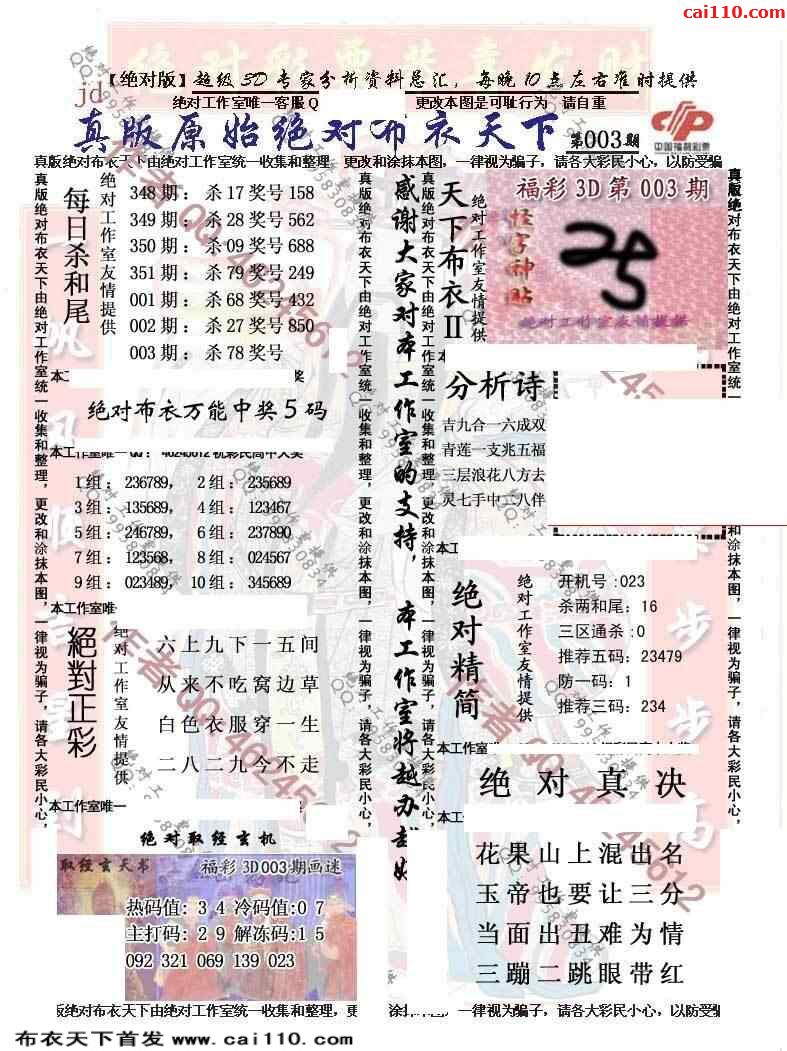 cai110.com
【绝对版】超级3D专家分析资料总汇，每晚10点左右准时提供
jd
绝对工作室唯一客服Q 更改本图是可耻行为 请自重
真版原始绝对布衣天下 第003期
中国福利彩票
真版绝对布衣天下由绝对工作室统一收集和整理，更改和涂抹本图，一律视为骗子，请各大彩民小心，以防受骗
每日杀和尾
绝对工作室友情提供
348期：杀17奖号158
349期：杀28奖号562
350期：杀09奖号688
351期：杀79奖号249
001期：杀68奖号432
002期：杀27奖号850
003期：杀78奖号
绝对布衣万能中奖5码
1组：236789， 2组：235689
3组：135689， 4组：123467
5组：246789， 6组：237890
7组：123568， 8组：024567
9组：023489， 10组：345689
本工作室唯一
絕對正彩
绝对工作室友情提供
六上九下一五间
从来不吃窝边草
白色衣服穿一生
二八二九今不走
本工作室唯一
绝对取经玄机
取经玄天书 福彩3D003期画迷
热码值：3 4 冷码值:0 7
主打码：2 9 解冻码:1 5
092 321 069 139 023
真版绝对布衣天下由绝对工作室统一收集和整理，更改和涂抹本图，一律视为骗子，请各大彩民小心，
感谢大家对本工作室的支持，本工作室将越办越好
天下布衣II
绝对工作室友情提供
福彩3D第003期
怪字神贴
25
绝对工作室友情提供
分析诗
吉九合一六成双
青莲一支兆五福
三层浪花八方去
灵七手中二八伴
绝对精简
绝对工作室友情提供
开机号:023
杀两和尾：16
三区通杀:0
推荐五码：23479
防一码：1
推荐三码：234
本工作室
绝对真决
花果山上混出名
玉帝也要让三分
当面出丑难为情
三蹦二跳眼带红
版绝对布衣天下由绝对工作室统一收集和整理，更
一律视为骗子，请各大彩民小心，以防受骗
布衣天下首发 www.cai110.com